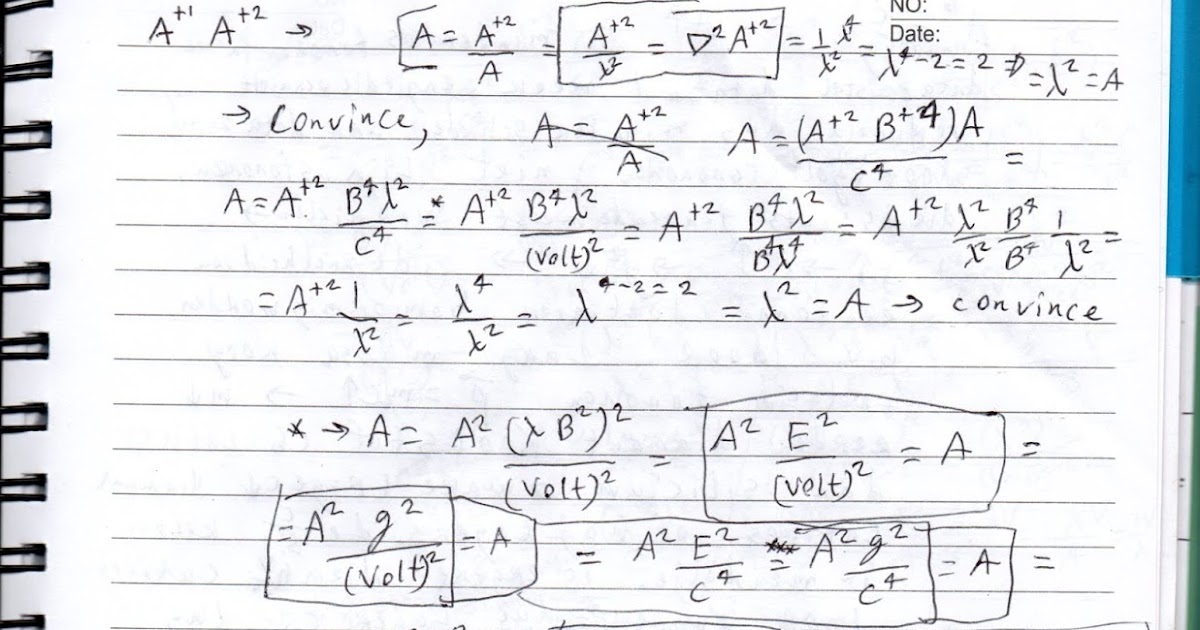 NO:
Date:
A⁺¹ A⁺² → A = A⁺²/A = A⁺²/λ² = ∇²A⁺² = 1/λ² λ⁴ = λ⁴⁻²⁼² ⇒ = λ² = A
→ Convince, A = A⁺²/A A = (A⁺² B⁺⁴)A/C⁴ =
A = A⁺² B⁴λ²/C⁴ =* A⁺² B⁴λ²/(Volt)² = A⁺² B⁴λ²/B⁴λ⁴ = A⁺² λ²/λ² B⁴/B⁴ 1/λ² =
= A⁺² 1/λ² = λ⁴/λ² = λ⁴⁻²⁼² = λ² = A → convince
* → A = A² (λB²)²/(Volt)² = A² E²/(Volt)² = A =
= A² g²/(Volt)² = A = A² E²/C⁴ *** = A² g²/C⁴ = A =